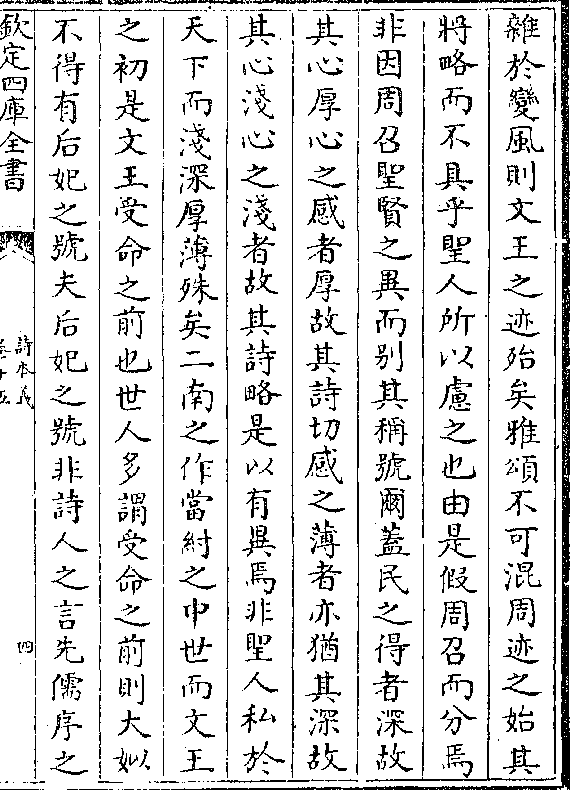 雜於變風則文王之迹殆矣雅頌不可混周迹之始其
將略而不具乎聖人所以慮之也由是假周召而分焉
非因周召聖賢之異而别其稱號爾蓋民之得者深故
其心厚心之感者厚故其詩切感之薄者亦猶其深故
其心淺心之淺者故其詩略是以有異焉非聖人私於
天下而淺深厚薄殊矣二南之作當紂之中世而文王
之初是文王受命之前也世人多謂受命之前則大姒
不得有后妃之號夫后妃之號非詩人之言先儒序之
欽定四庫全書
詩本義
卷十五
四